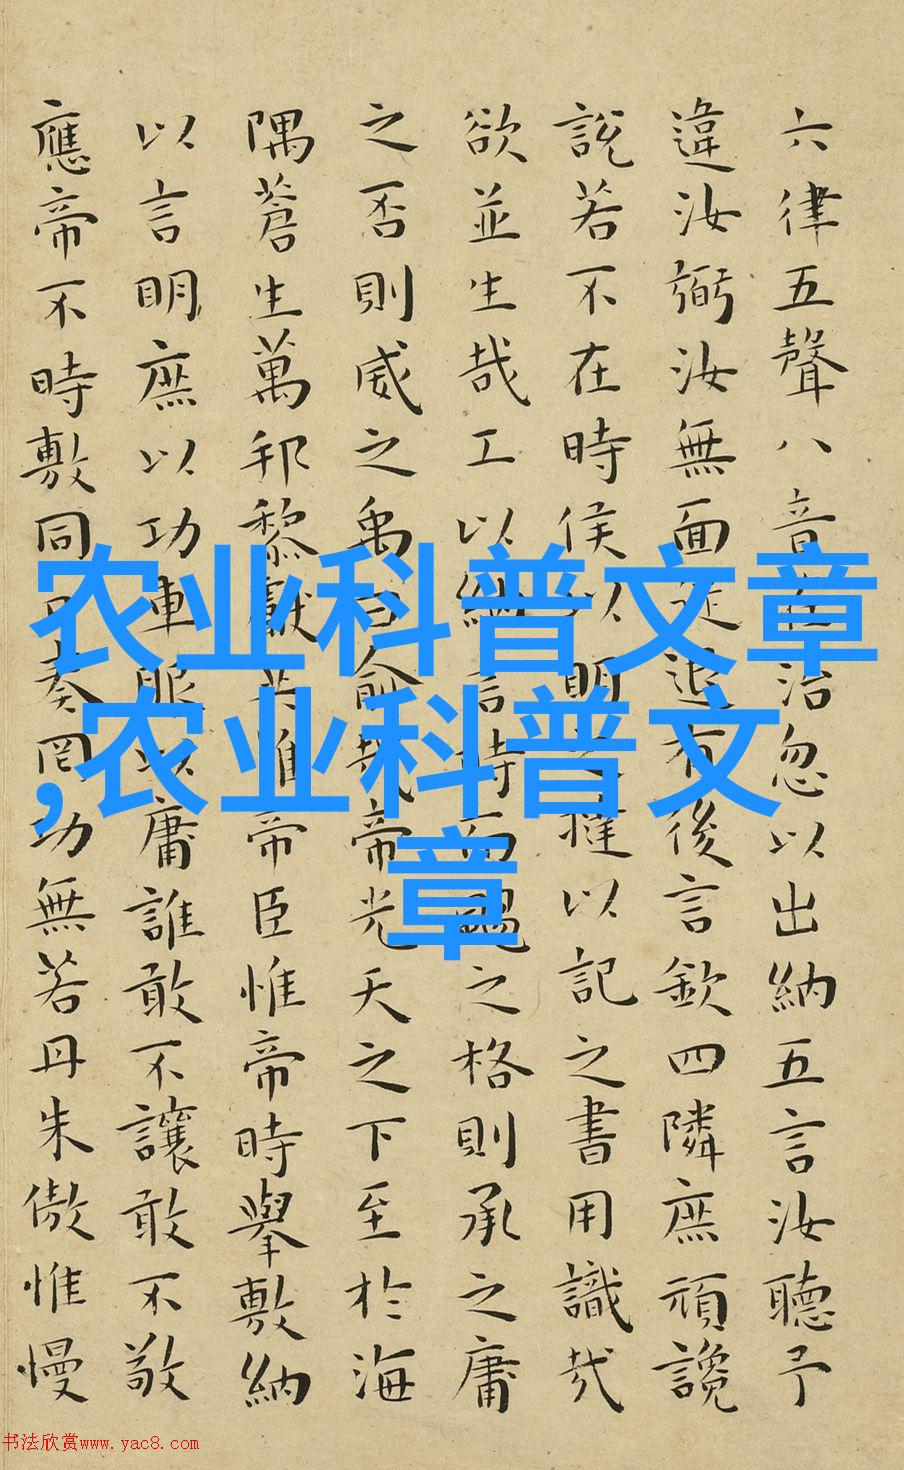 六律五聲八音在治忽以出納五言汝聽予
違汝弼汝無面從退有後言欽四隣庶頑讒
說若不在時侯以明之撻以記之書用識哉
欲並生哉工以納言時而颺之格則承之庸
之否則威之禹曰俞哉帝光天之下至於海
隅蒼生萬邦黎獻共惟帝臣惟帝時舉敷納
以言明庶以功車服以庸誰敢不讓敢不敬
應帝不時敷同日奏罔功無若丹朱傲惟慢
农业科普文章
,农业科普文
章
书法欣赏www.yac8.com